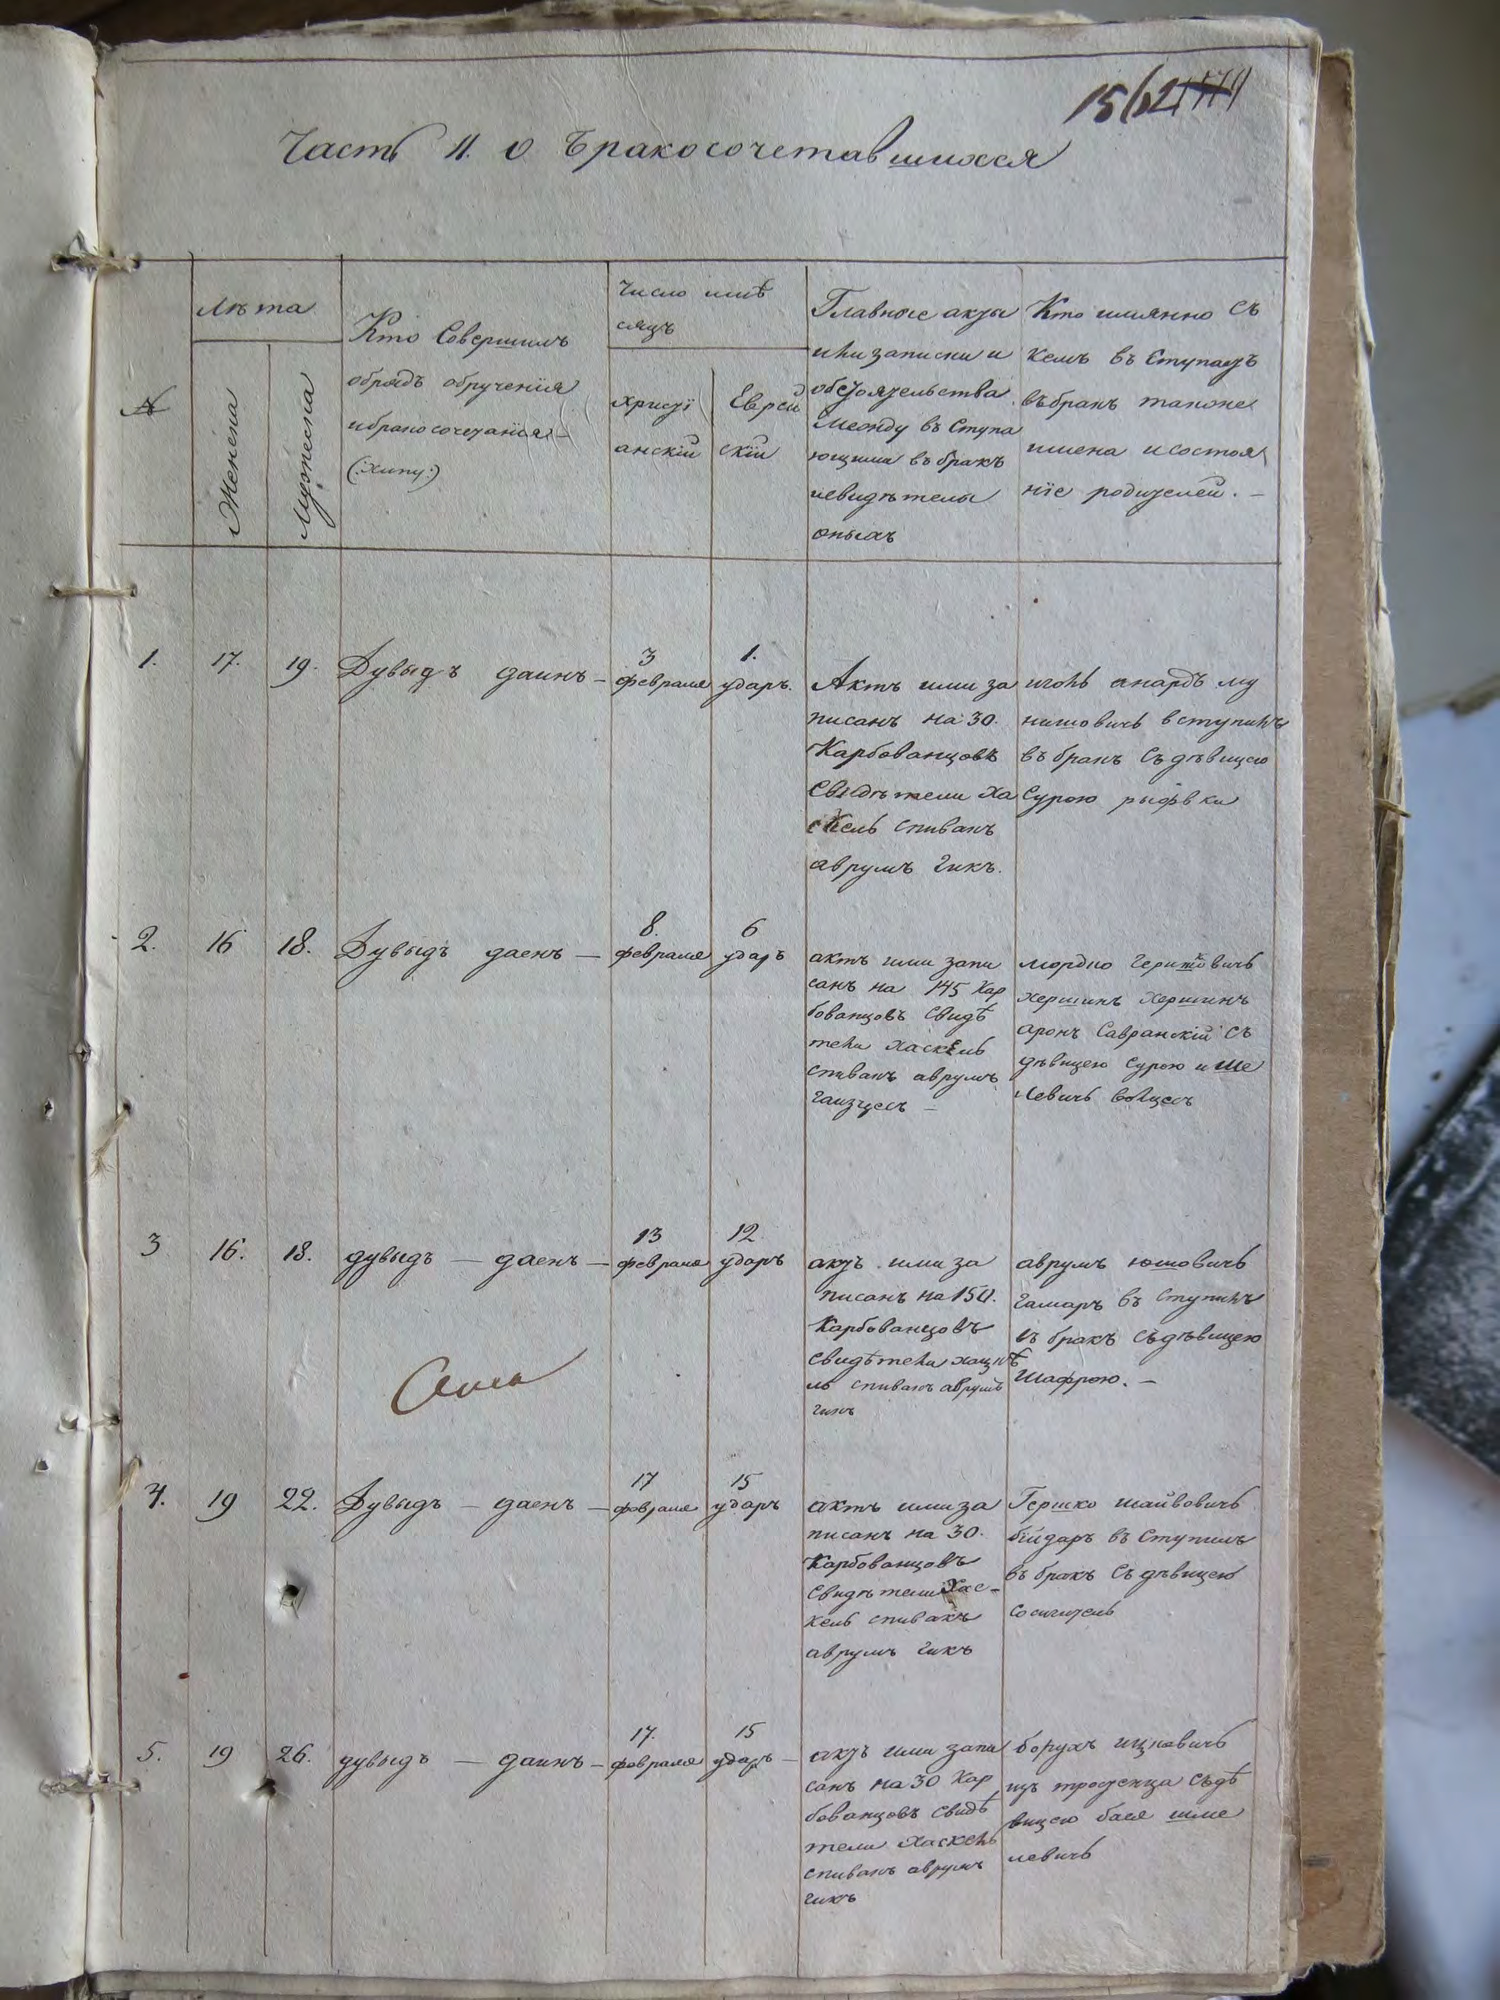 Часть II. о бракосочетавшихся
№
Лѣта
Женска
Мужеска
Кто Совершилъ
обрядъ обручения
и бракосочетания
(:Хипу:)
Число и мѣ
сяцъ
христі
анскій
Еврей
скій
Главные акты
или записки и
обстоятельства
Между въ Ступа
ющими въ бракъ
и свидѣтели
оныхъ
Кто имянно съ
кемъ въ Ступаетъ
въ бракъ также
имена и состоя
ніе родителей. —
1.
17.
19.
Дувыдъ даинъ —
3
февраля
1.
ударъ.
Актъ ими за
писанъ на 30.
Карбованцовъ
Свидѣтели Ха
скель спивакъ
аврумъ гикъ.
вступилъ
въ бракъ съ дѣвицею
Сурою
2.
16
18.
Дувыдъ даенъ —
8.
февраля
6
ударъ
актъ ими запи
санъ на 145 Кар
бованцовъ Свидѣ
тели хаскель
спивакъ аврумъ
мордко
аронъ Савранскій съ
дѣвицею Сурою
3
16.
18.
дувыдъ — даенъ —
13
февраля
12
ударъ
актъ ими за
писанъ на 150.
Карбованцовъ
свидѣтели
ль спивакъ аврумъ
гикъ
аврумъ юшовичь
гамаръ въ Ступилъ
въ бракъ съ дѣвицею
Шафрою. —
4.
19
22.
Дувыдъ — даенъ —
17
февраля
15
ударъ
актъ ими за
писанъ на 30.
Карбованцовъ
Свидѣтели Хас-
кель спивакъ
аврумъ гикъ
Гершко
въ Ступилъ
въ бракъ съ дѣвицею
5.
19
26.
дувыдъ — даинъ —
17.
февраля
15
ударъ —
актъ ими запи
санъ на 30 Кар
бованцовъ свидѣ
тели Хаскель
спивакъ аврумъ
гикъ
борухъ ицковичь
съ дѣ
вицею бася шме
левичь